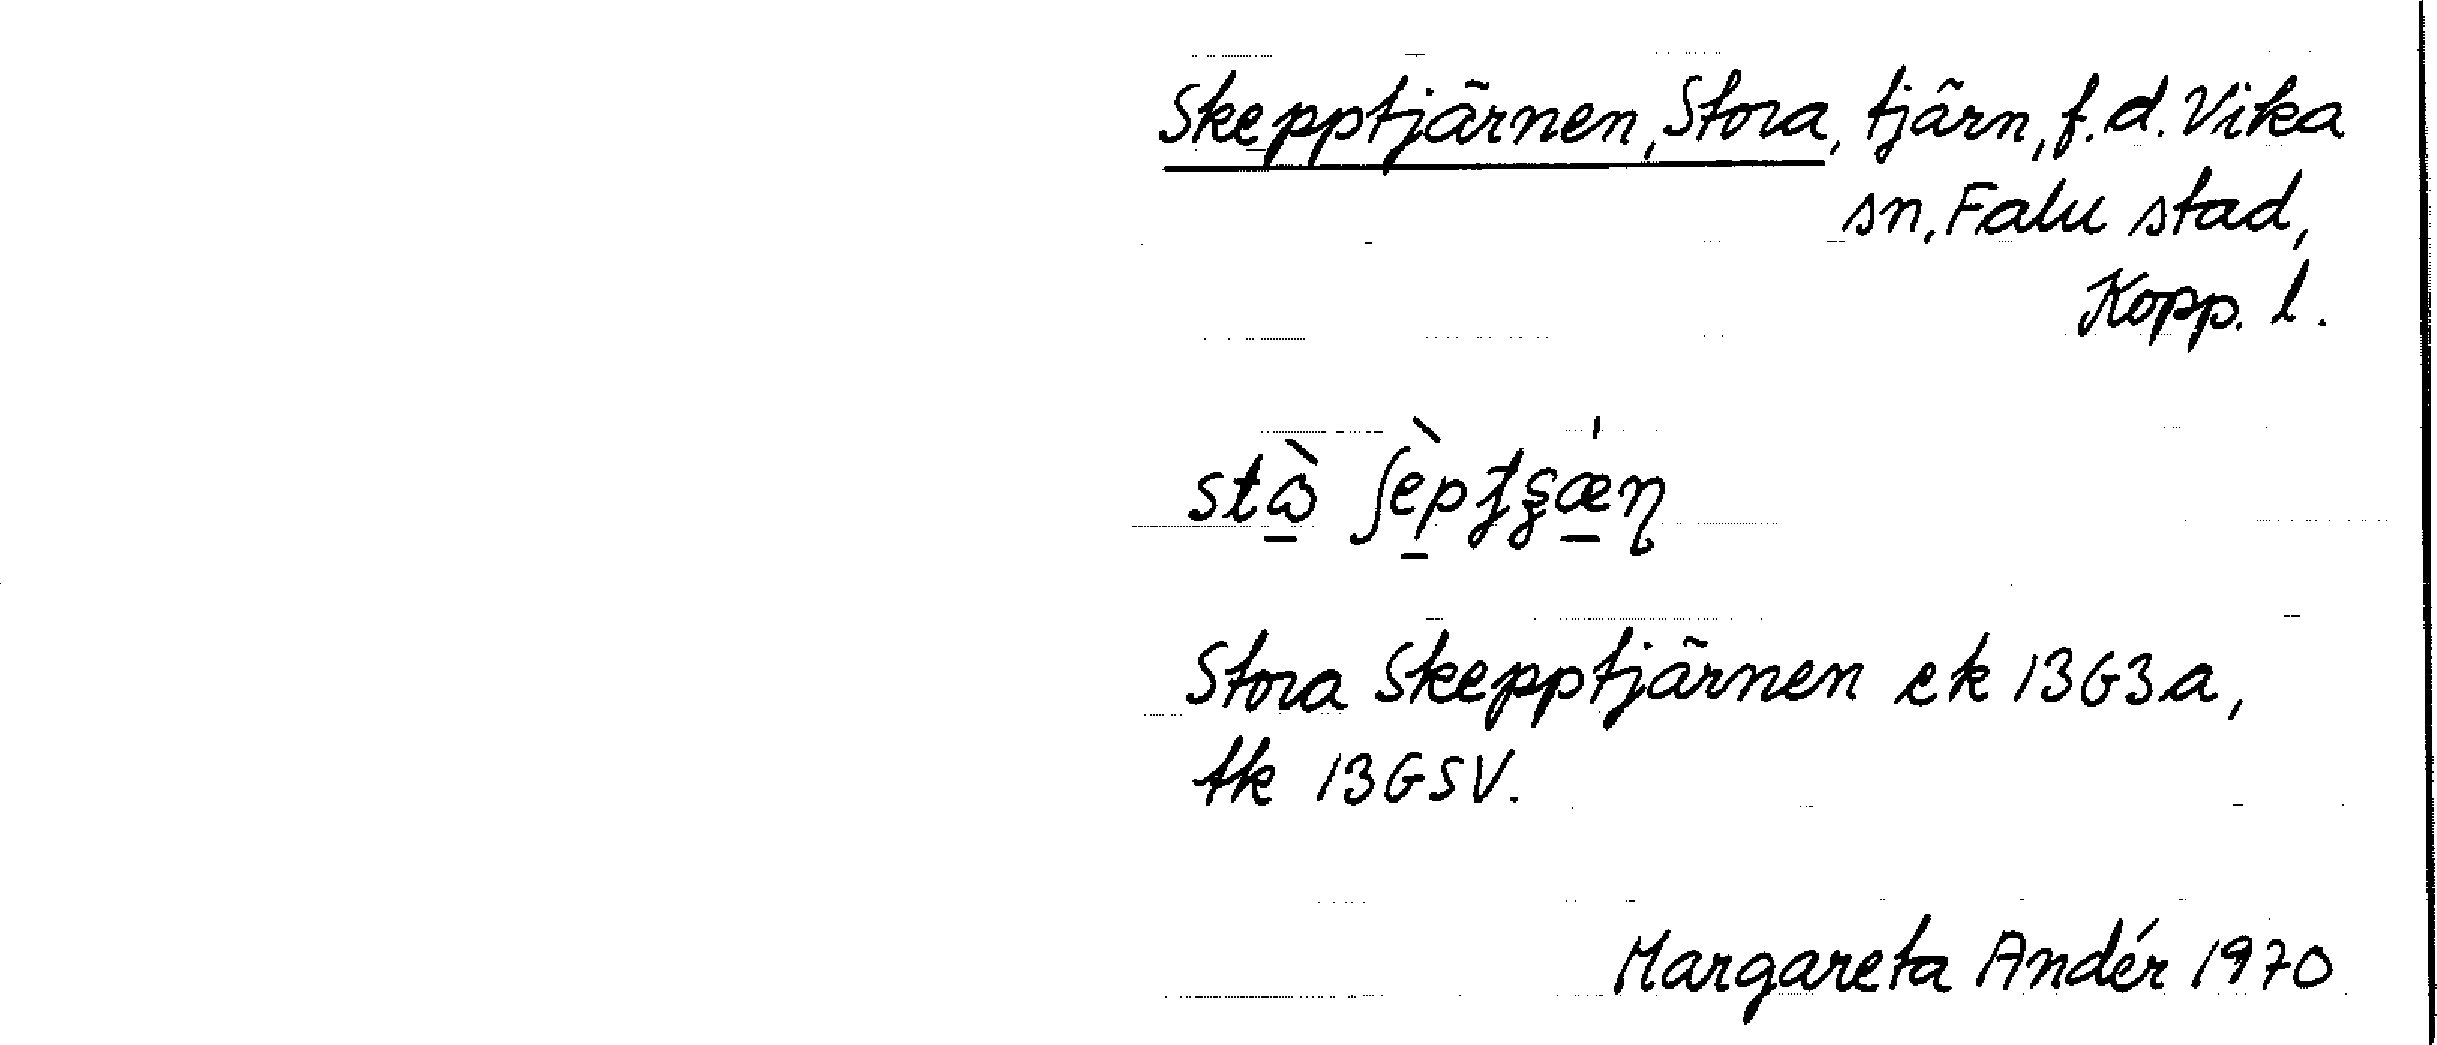 Skepptjärnen, Stora, tjärn, f.d. Vika
sn, Falu stad,
Kopp. l.
Stora Skepptjärnen ek 13G3a,
tk 13GSV.
Margareta Andér 1970